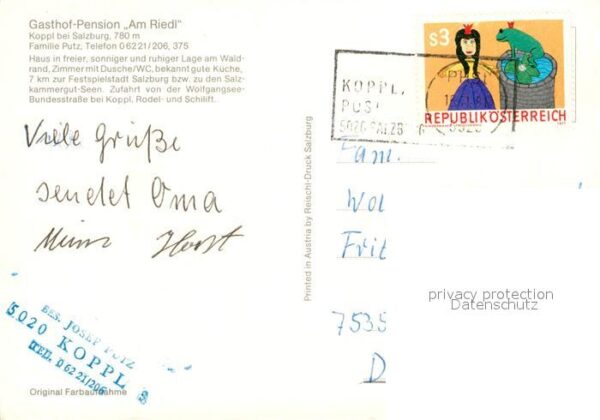 Gasthof-Pension „Am Riedl"
Koppl bei Salzburg, 780 m
Familie Putz, Telefon 0 62 21 / 206, 375
Haus in freier, sonniger und ruhiger Lage am Wald-
rand, Zimmer mit Dusche/WC, bekannt gute Küche,
7 km zur Festspielstadt Salzburg bzw. zu den Salz-
kammergut-Seen. Zufahrt von der Wolfgangsee-
Bundesstraße bei Koppl, Rodel- und Schilift.
Viele Grüße
sendet Oma
Horst
BES. JOSEF PUTZ
5020 KOPPL
TEL. 0 62 21/206
Original Farbaufnahme
Printed in Austria by Reischl-Druck Salzburg
s3
REPUBLIK ÖSTERREICH
KOPPL,
POST
5020
Fam.
Wol
Frit
7535
D
privacy protection
Datenschutz